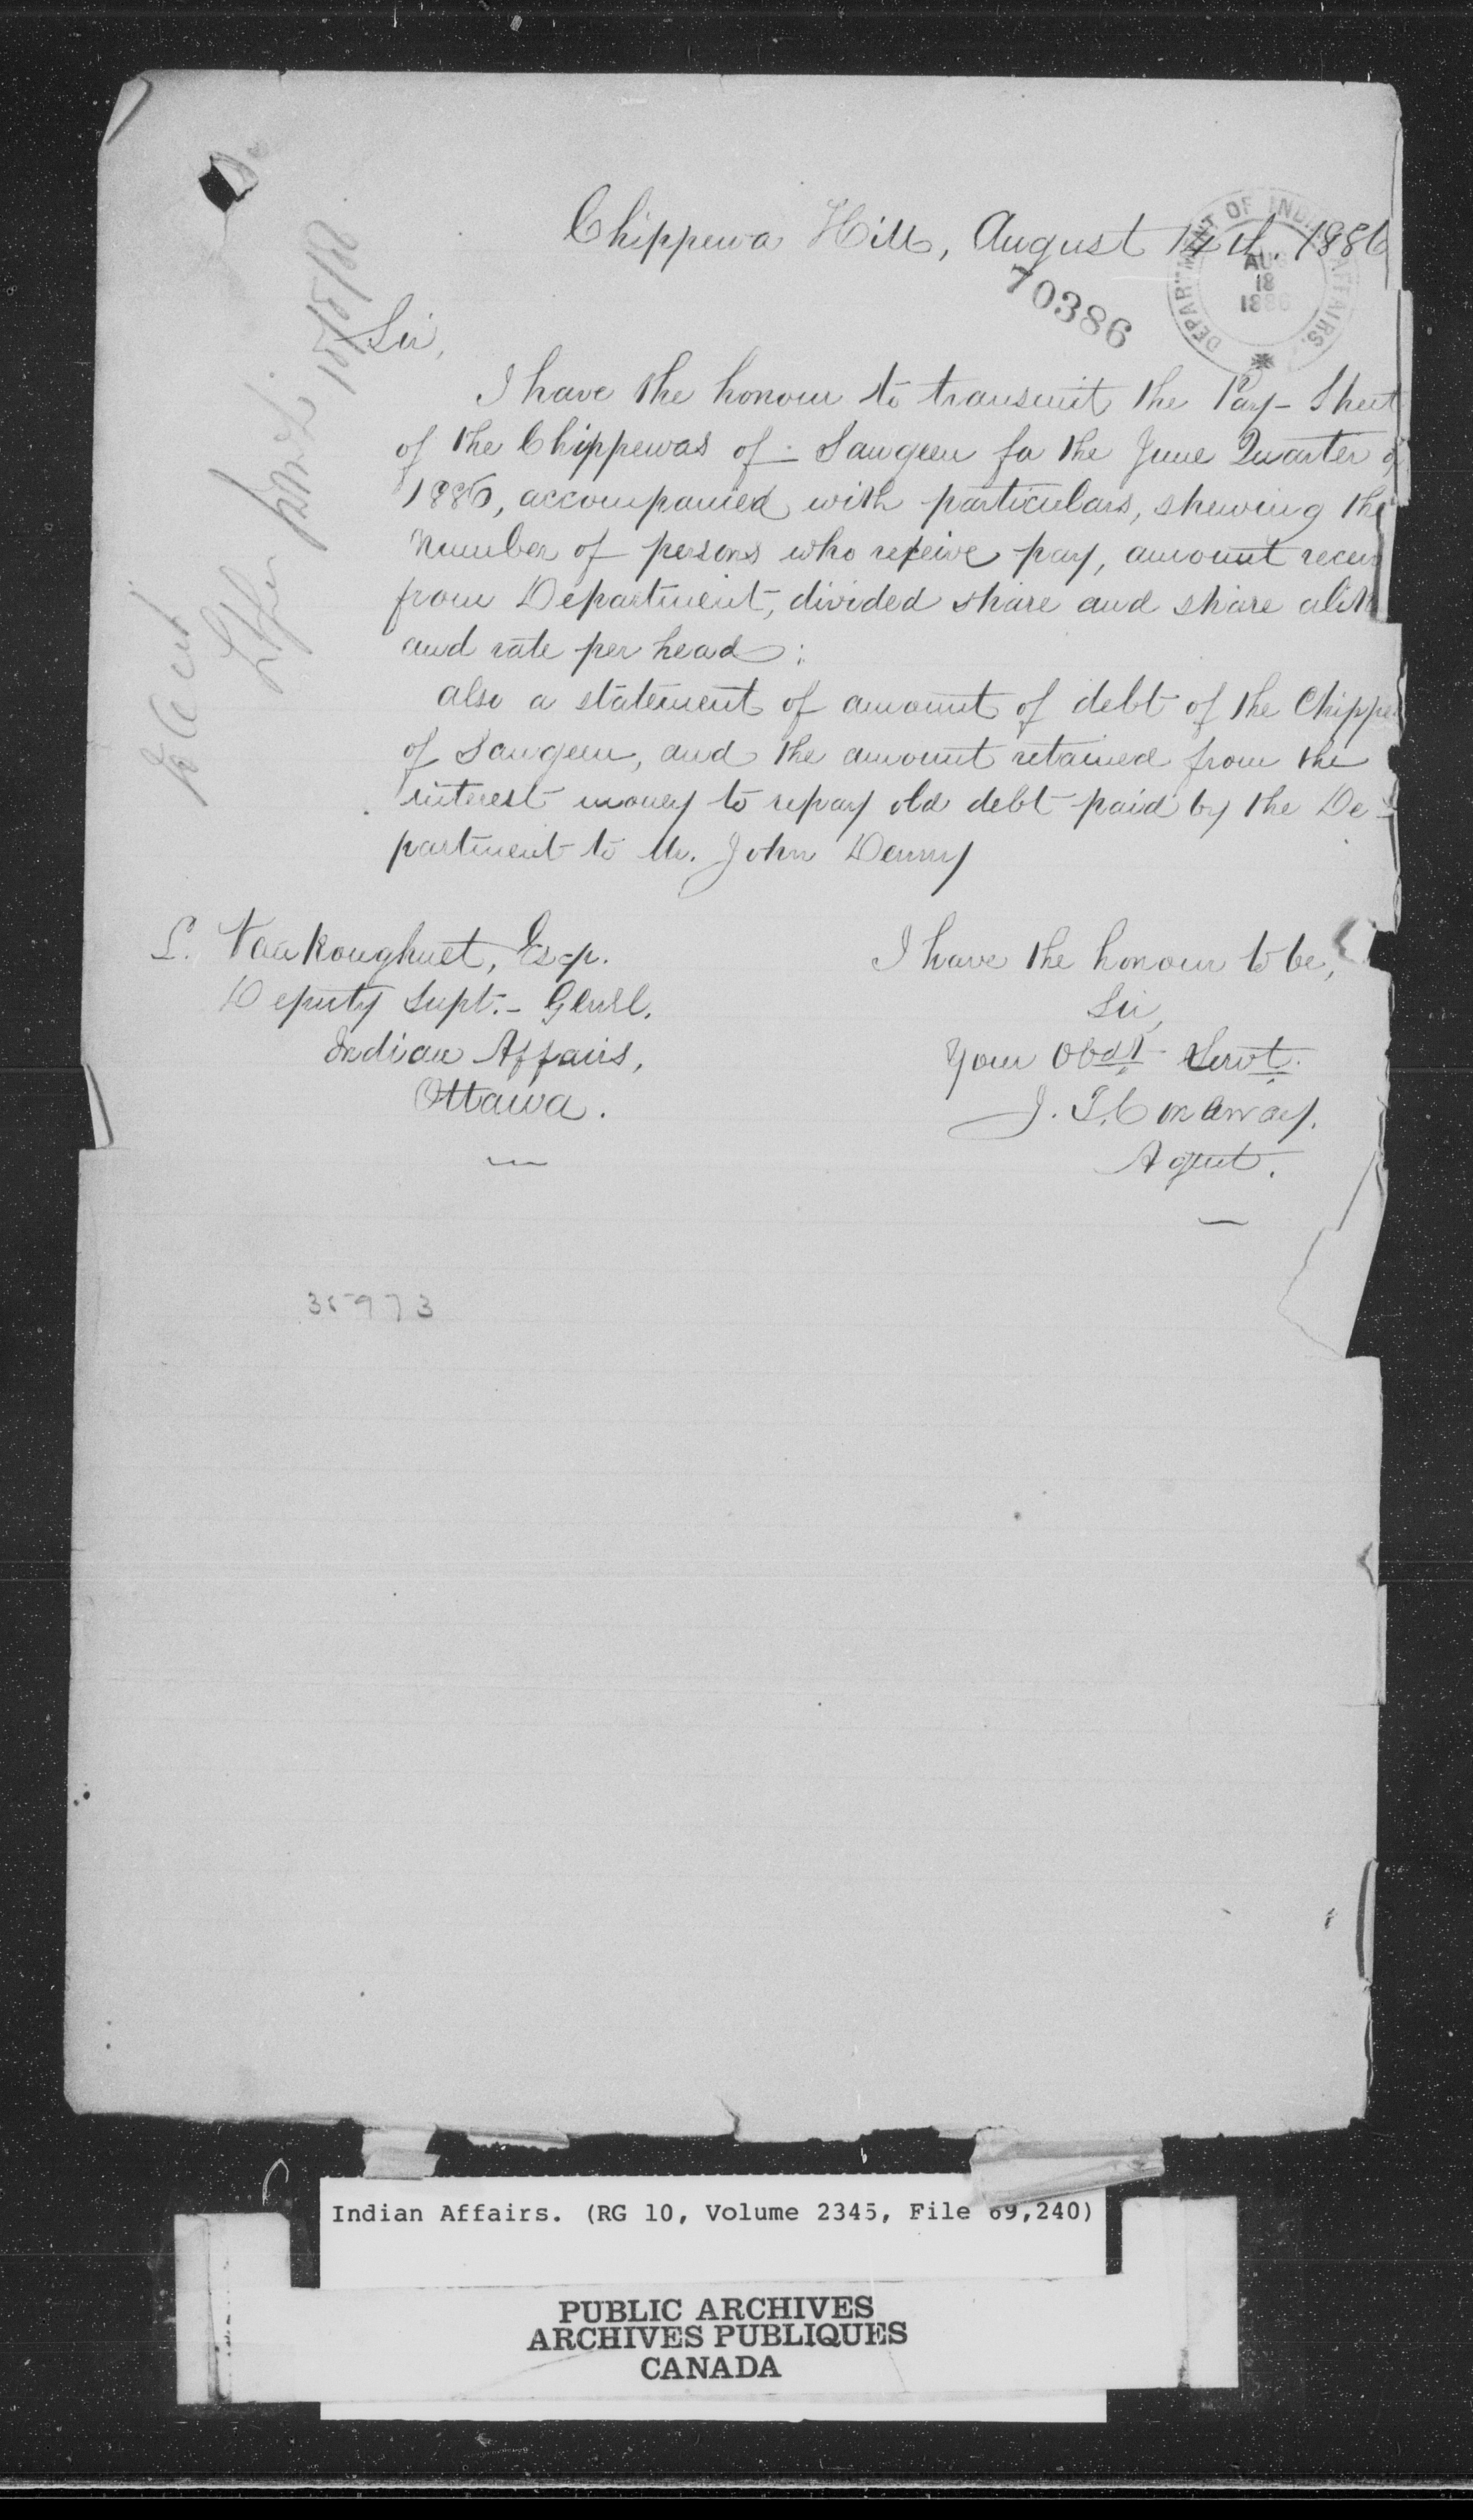 Chippewa Hill, August 14th. 1886
DEPARTMENT OF INDIAN AFFAIRS.
AUG
18
1886
70386
Sir,
I have the honour to transmit the Pay-Sheet
of the Chippewas of Saugeen for the June Quarter of
1886, accompanied with particulars, shewing the
number of persons who receive pay, amount receiv
from Department, divided share and share alike
and rate per head:
also a statement of amount of debt of the Chippe
of Saugeen, and the amount retained from the
interest money to repay old debt paid by the De-
partment to Mr. John Denny
L. VanKoughnet, Esqr.
Deputy Supt.- Genrl.
Indian Affairs,
Ottawa.
I have the honour to be,
Sir,
Your Obdt Servt.
J. T. Conaway.
Agent.
35973
Indian Affairs. (RG 10, Volume 2345, File 69,240)
PUBLIC ARCHIVES
ARCHIVES PUBLIQUES
CANADA